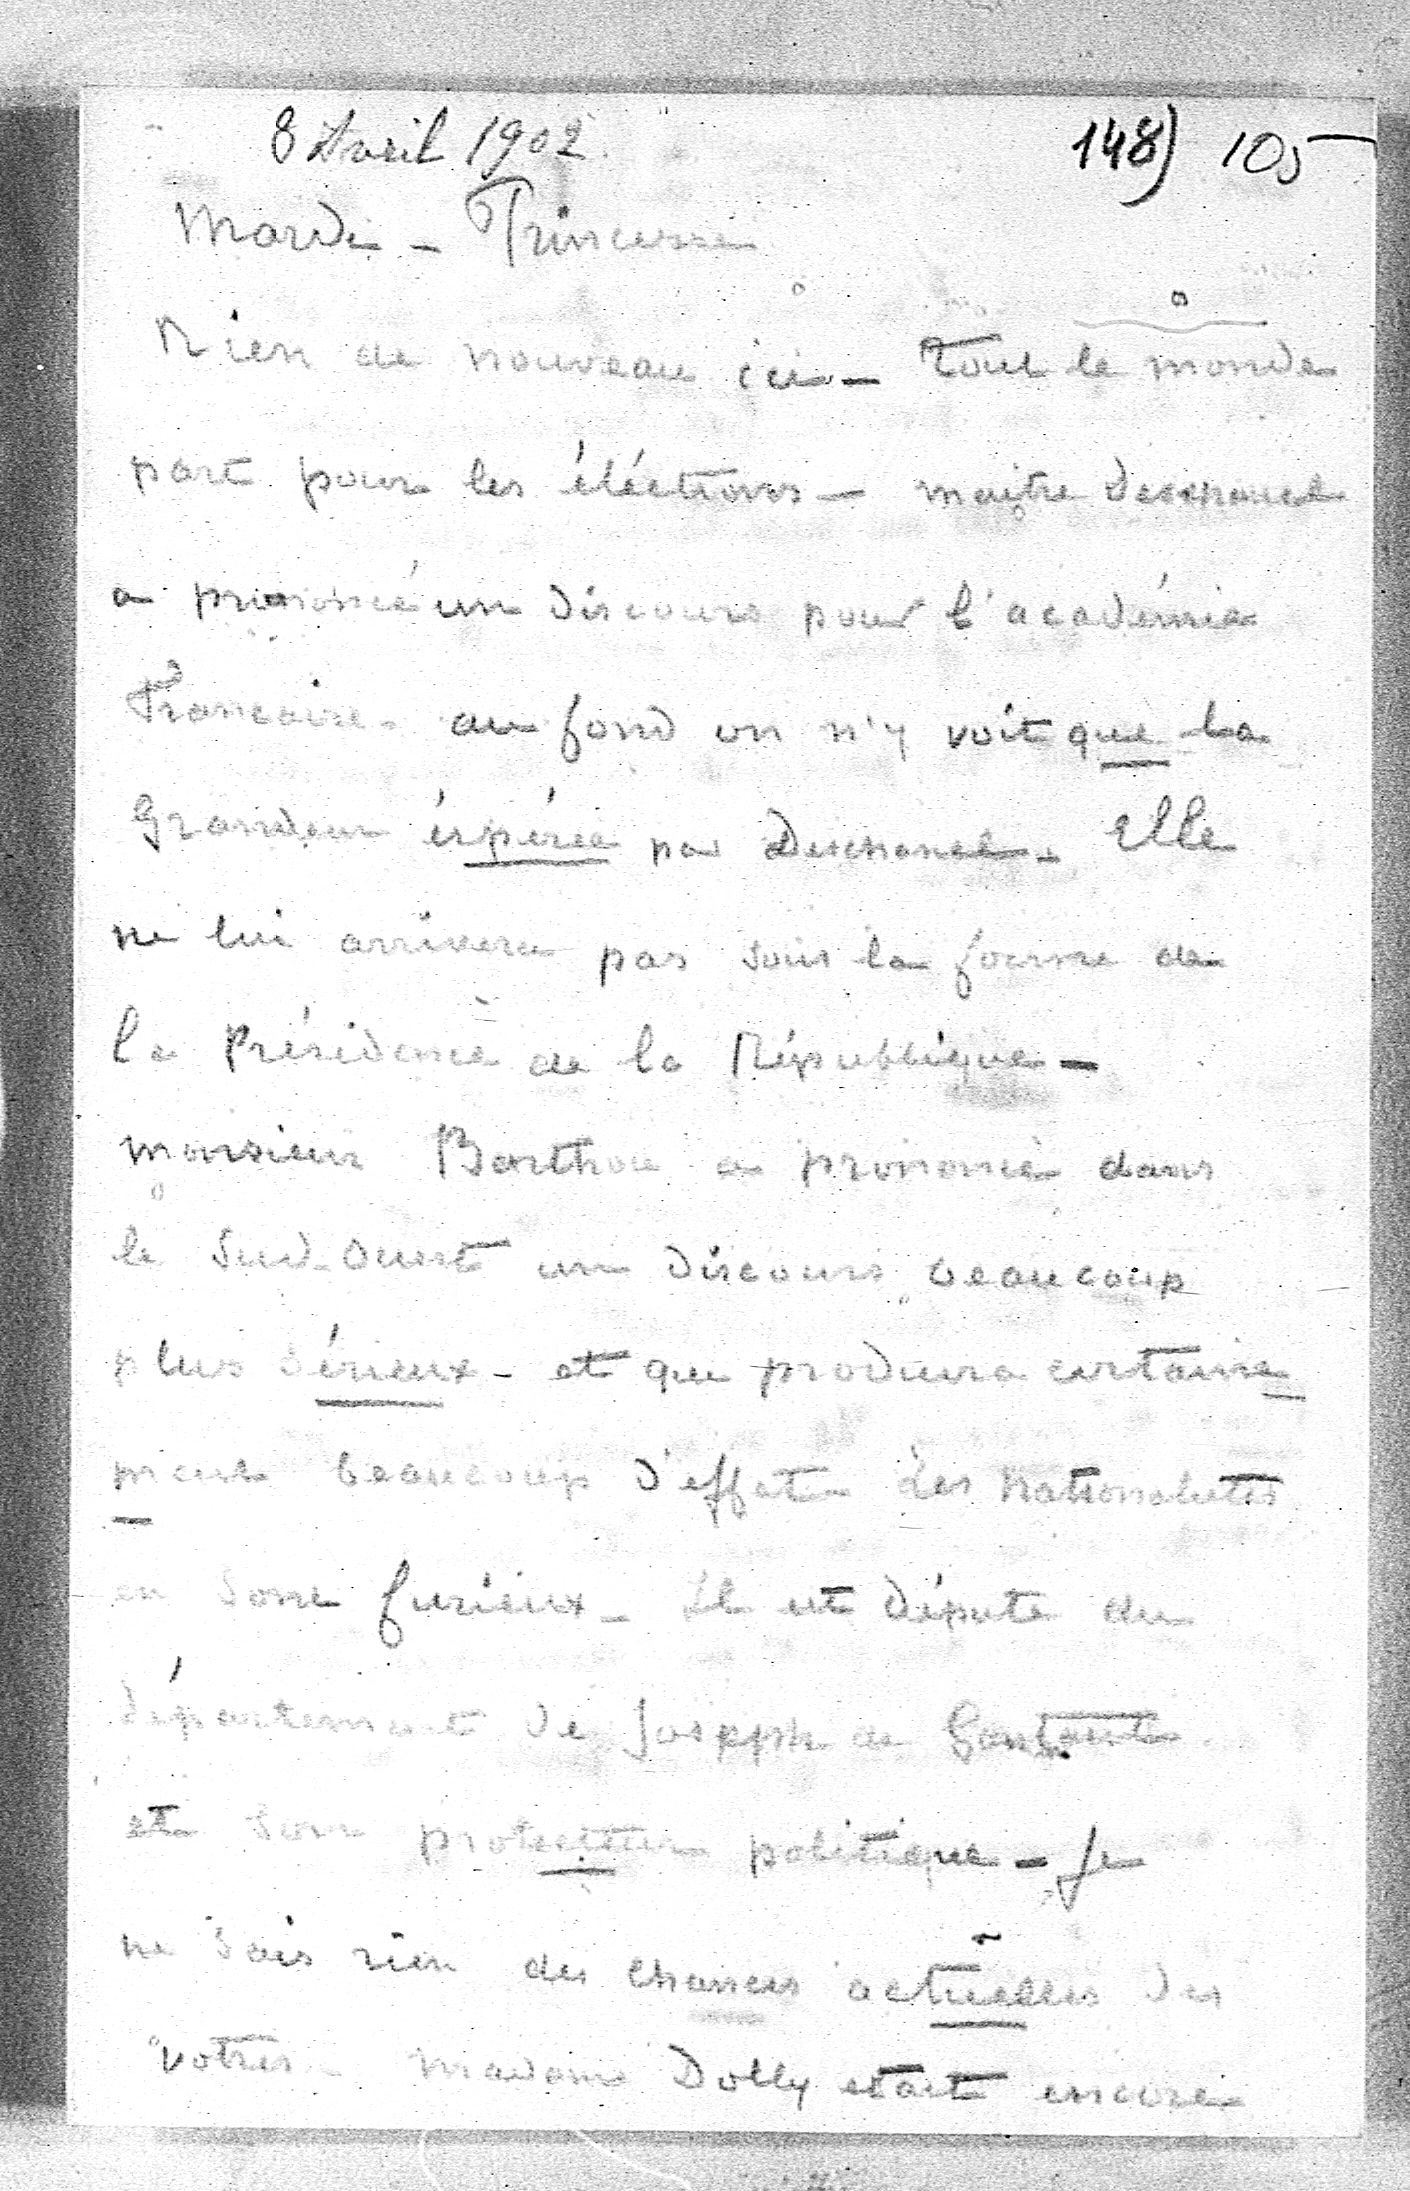 8 Avril 1902 148) 105
Mardi - Princesse
Rien de nouveau ici - Tout le monde
part pour les éléctions - maitre Deschanel
a prononcé un discours pour l'académie
Francaise. au fond on n'y voit que la
Grandeur éspérée par Deschanel. Elle
ne lui arrivera pas sous la forme de
la Présidence de la République -
monsieur Barthou a prononcé dans
le Sud-Ouest un discours beaucoup
plus sérieux - et que produira certaine
ment beaucoup d'effet les nationalistes
en sont furieux - il est député du
département de Joseph de Gontaut
et son protecteur politique - Je
ne sais rien des chances actuelles des
votres - madame Dolly etait encore